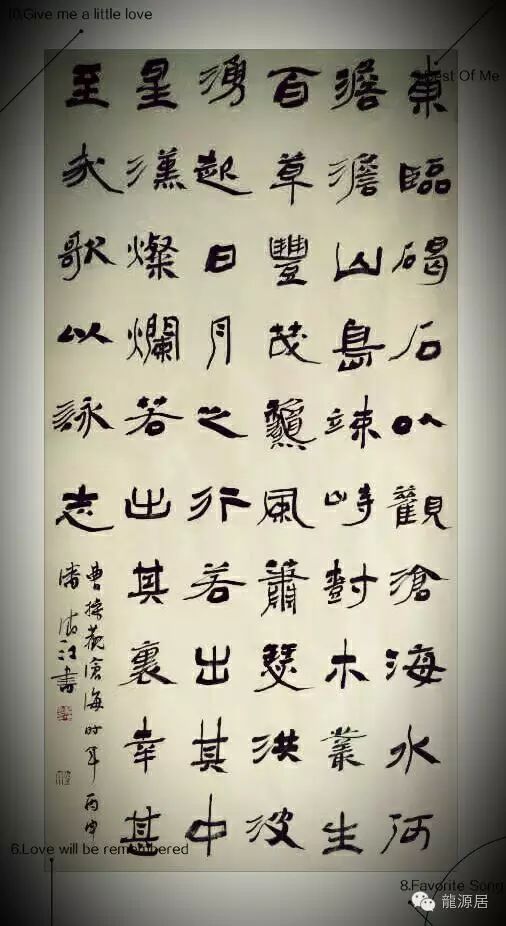 10.Give me a little love
Best Of Me
東臨碣石以觀滄海水何
澹澹山島竦峙樹木叢生
百草豐茂龝風蕭瑟洪波
湧起日月之行若出其中
星漢燦爛若出其裏幸甚
至哉歌以詠志
曹操觀滄海時年丙申
潘江書
6.Love will be remembered
8.Favorite Song
龍源居